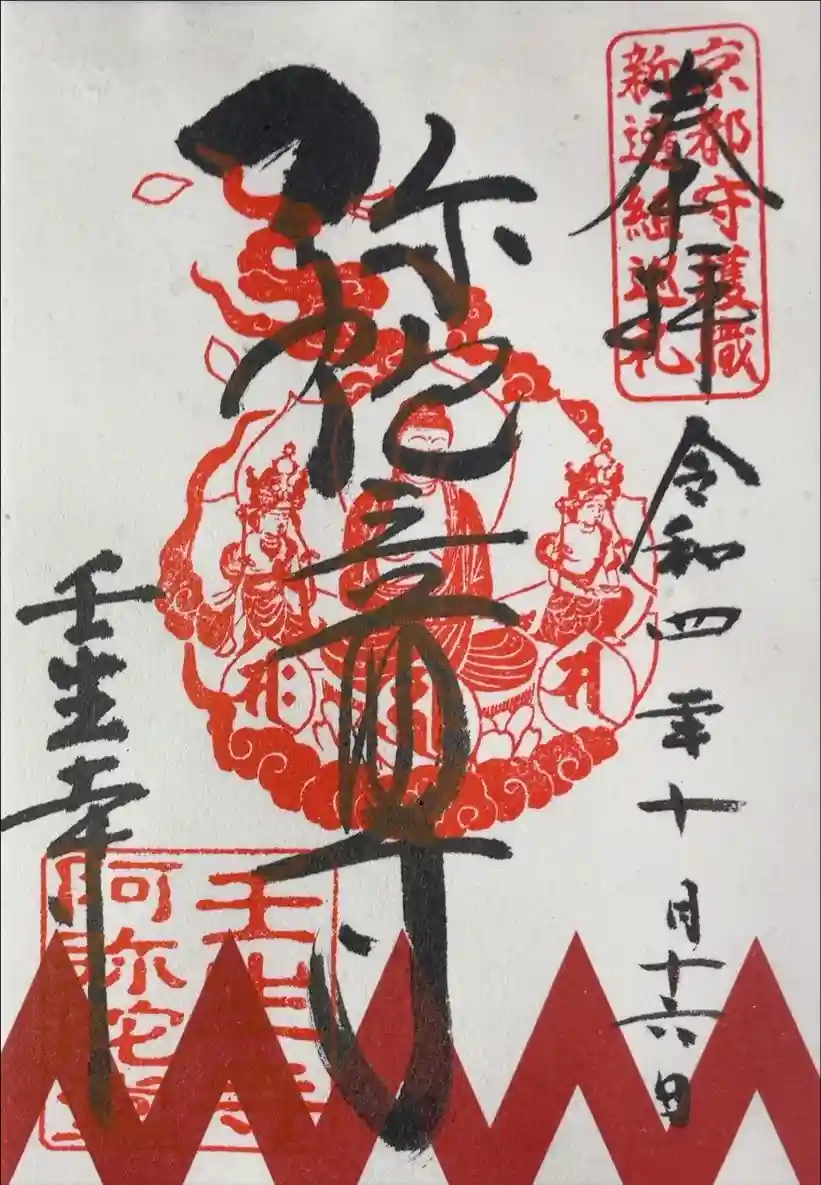 京都守護職
新選組巡礼
奉拝
令和四年十月十六日
弥陀三尊
壬生寺
壬生寺
阿弥陀堂